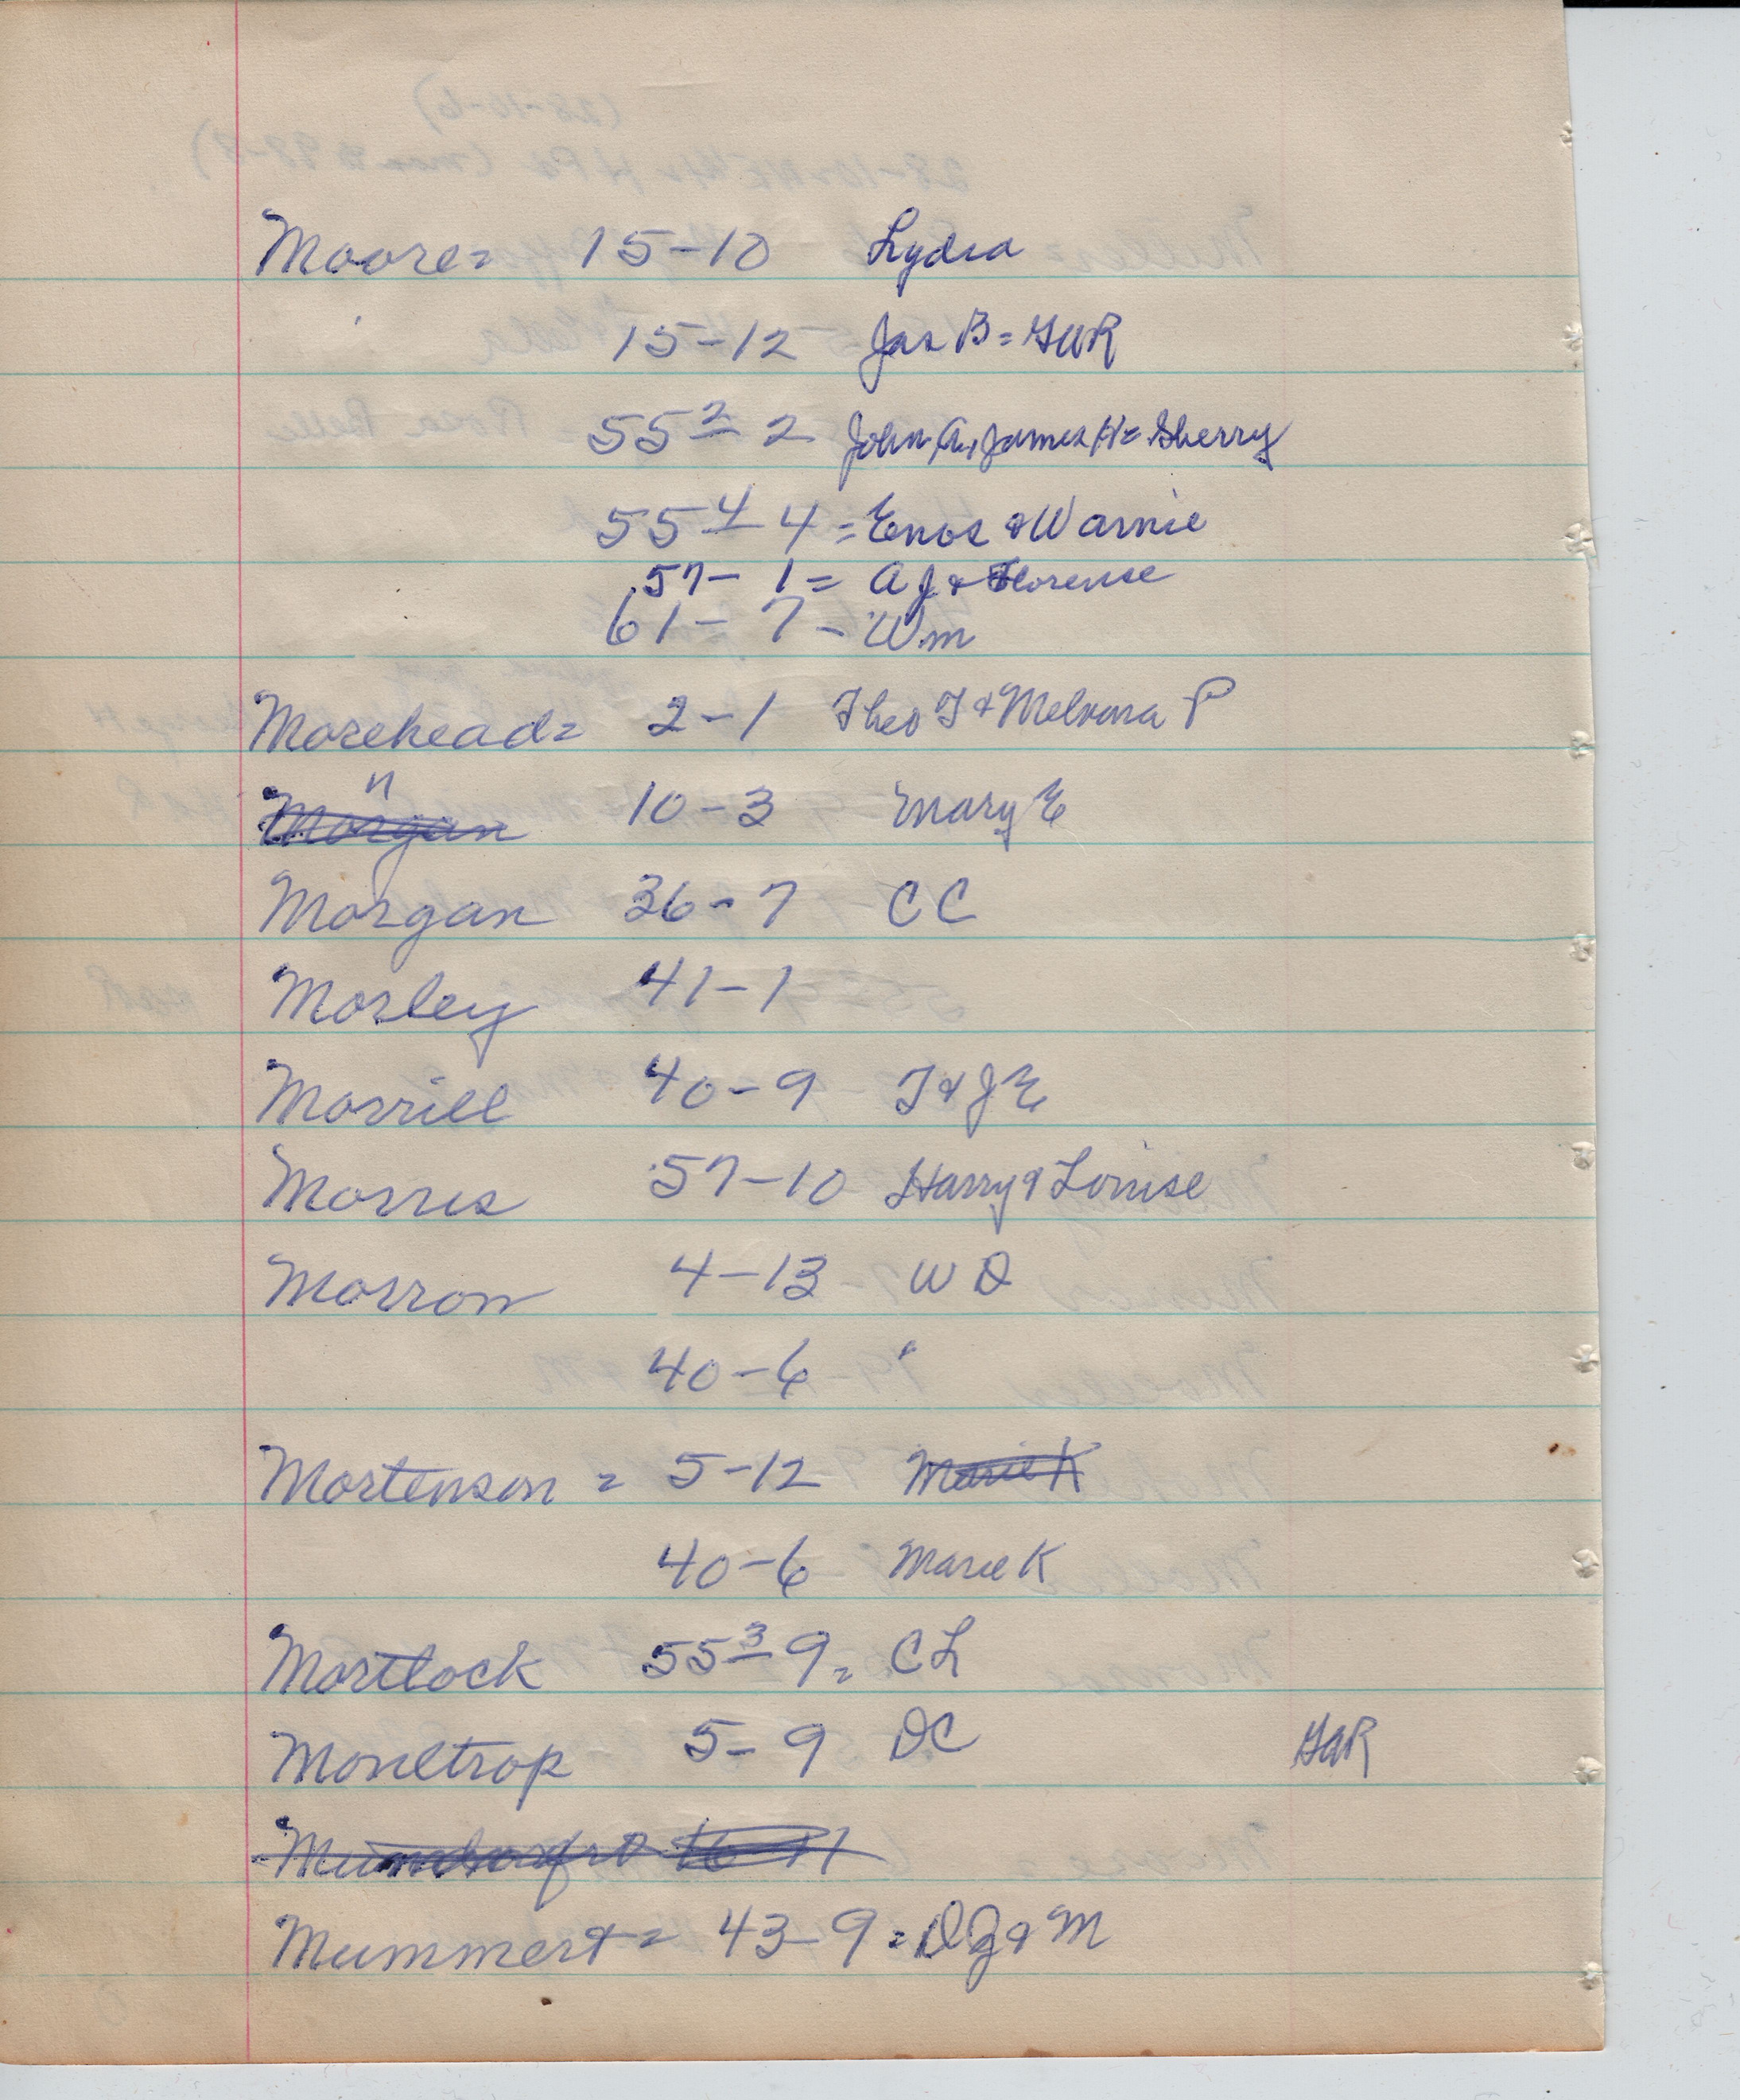 Moore= 15-10 Lydia
15-12 Jas B= GAR
55 2- 2 John A, James H= Sherry
55 4- 4 = Enos & Warnie
57- 1= A J & Florense
61- 7- Wm
Morehead= 2-1 Theo T & Melvina P
" 10-3 Mary E
Morgan
Morgan 36-7 CC
Morley 41-1
Morrill 40-9 T & J E
Morris 57-10 Harry & Louise
Morrow 4-13 W D
40-6 "
Mortenson = 5-12 Marie K
40-6 Marie K
Mortlock 55 3- 9= C L
Moueltrop 5-9 DC GAR
Mummert= 43-9= D Z & M